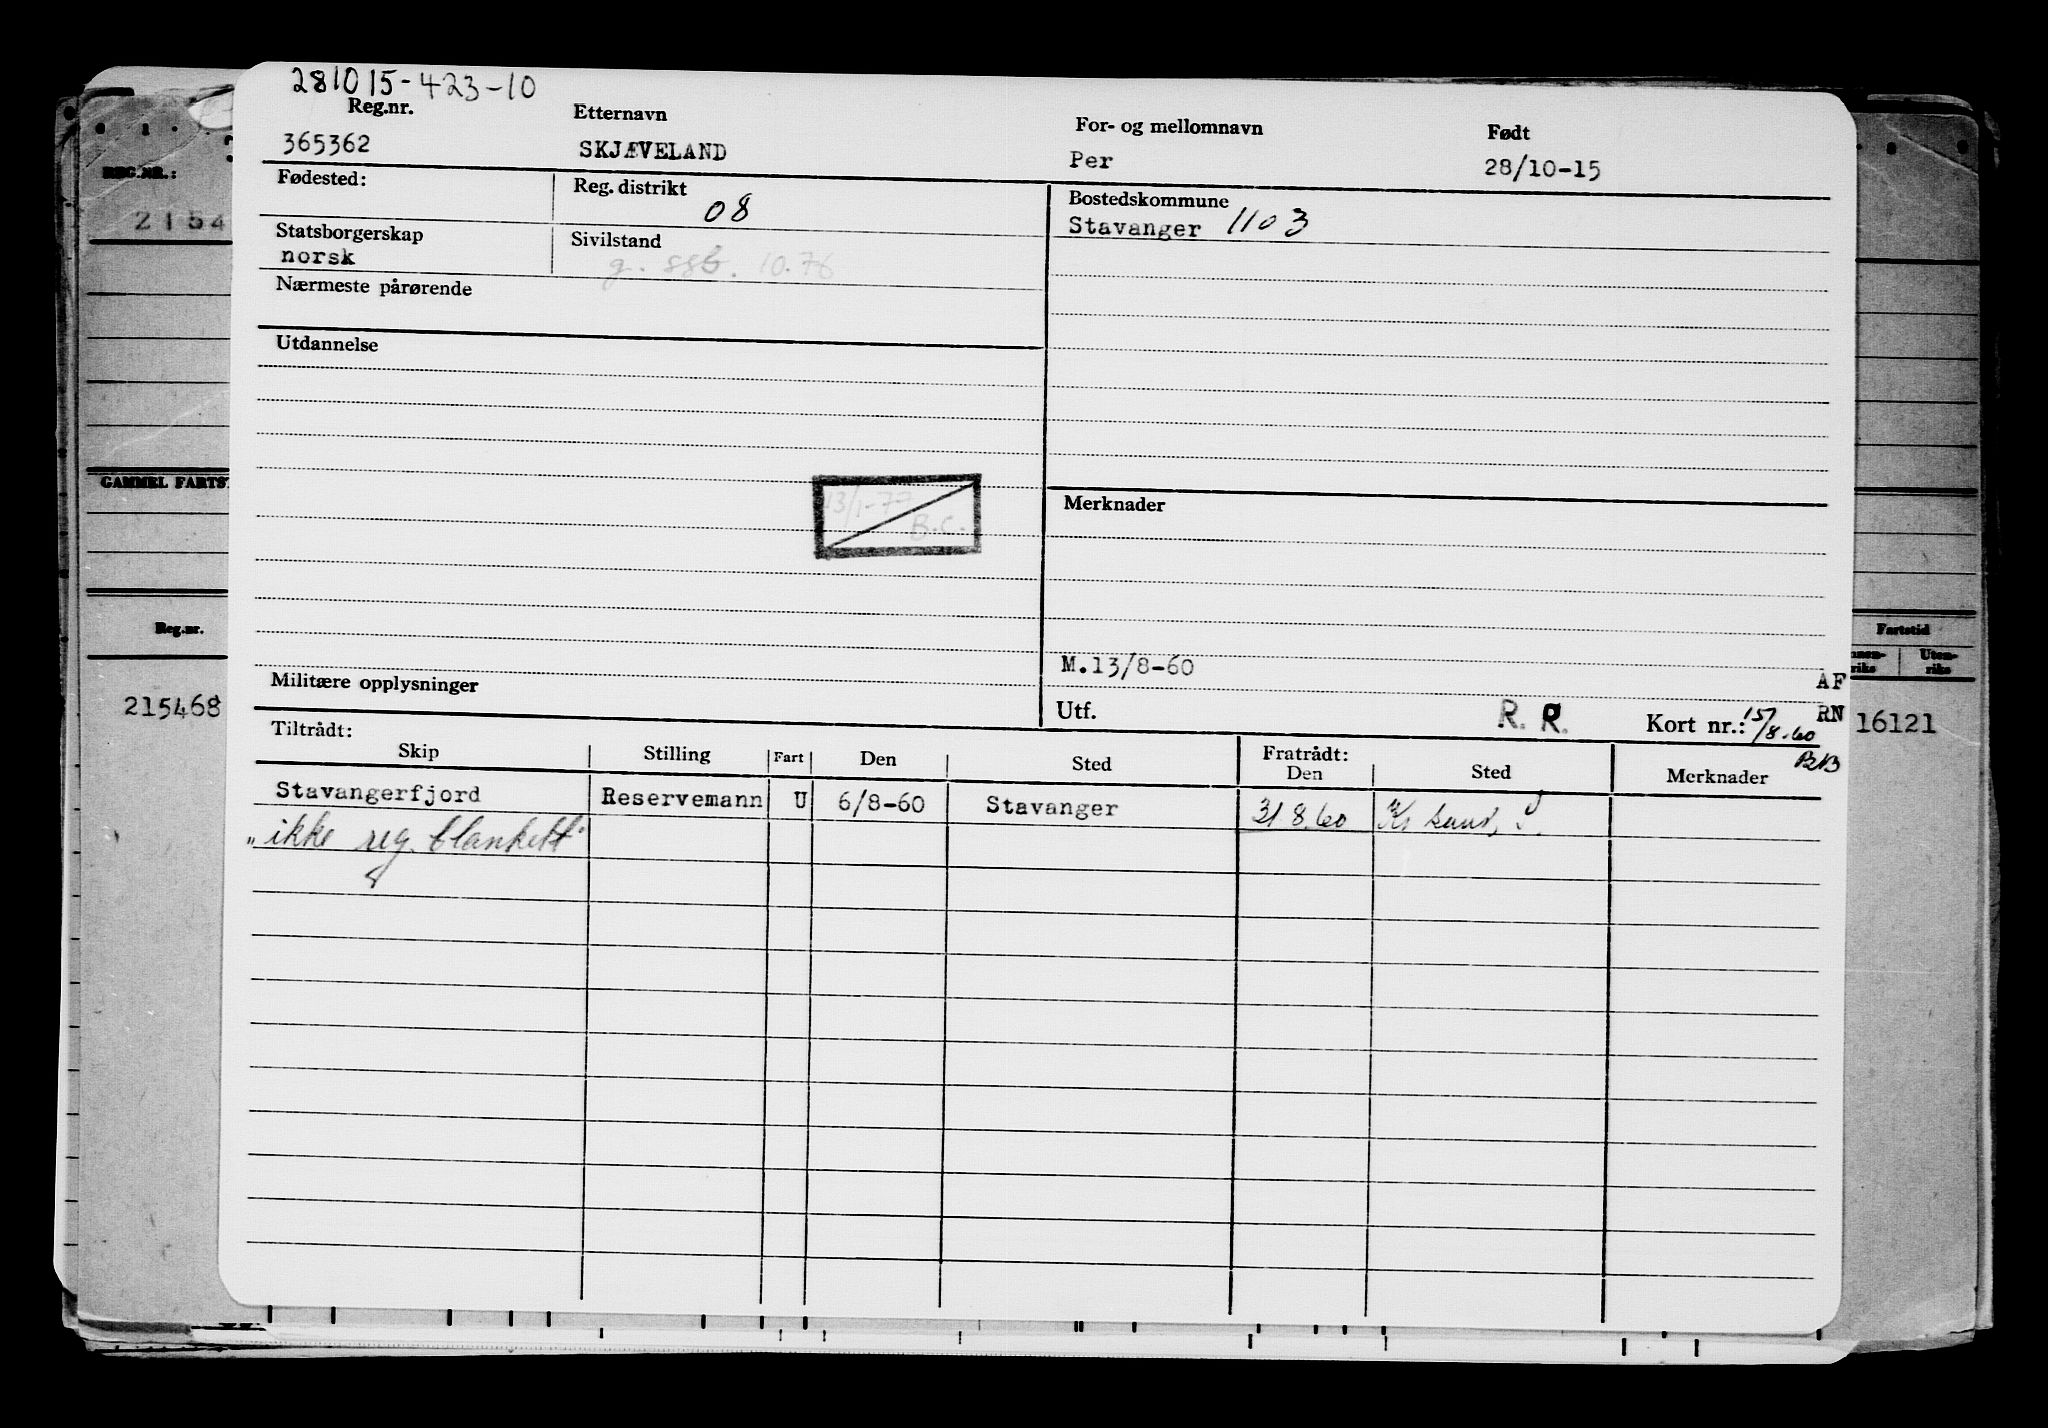 281015-423-10
Reg.nr. Etternavn For- og mellomnavn Født
365362 SKJÆVELAND Per 28/10-15
Fødested: Reg. distrikt 08 Bostedskommune
Stavanger 1103
Statsborgerskap Sivilstand
norsk g. ssb. 10.76
Nærmeste pårørende
Utdannelse
13/1-77 B.C.
Merknader
M.13/8-60
Militære opplysninger
Utf. R. R. Kort nr.: 15/8.60
AF
RN
Tiltrådt: Fratrådt:
Skip Stilling Fart Den Sted Den Sted Merknader
Stavangerfjord Reservemann U 6/8-60 Stavanger 31 8.60 Kr sand, S.
"ikke reg. blankett"
REG.NR.:
2154
GAMMEL FARTST
Reg.nr.
215468
Fartstid
Uten-
riks
16121